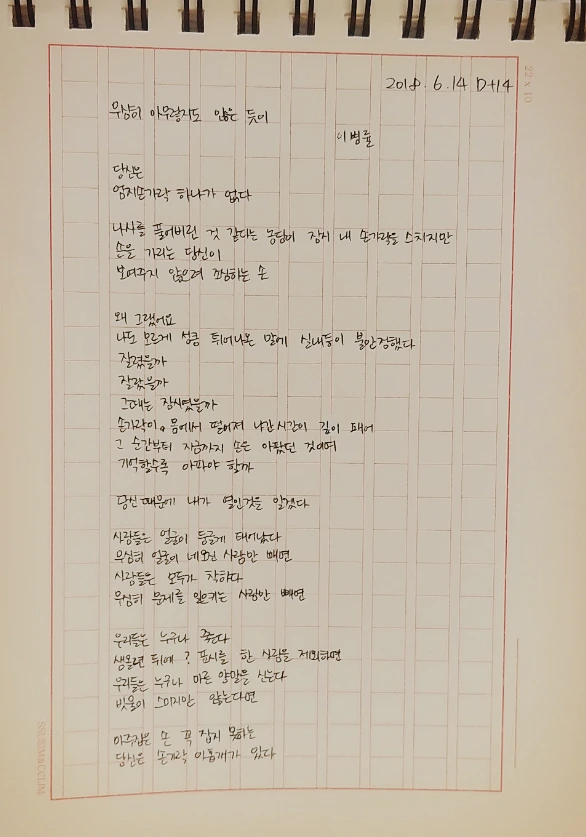 2018. 6. 14 D+14
22 x 10
무심히 아무렇지도 않은 듯이
이병률
당신은
엄지손가락 하나가 없다
나사를 풀어버린 것 같다는 농담이 잠시 내 손가락을 스치지만
손을 가리는 당신이
보여주지 않으려 조심하는 손
왜 그랬어요
나도 모르게 성큼 튀어나온 말에 실내등이 불안정했다
잘렸을까
잘랐을까
그때는 잠시였을까
손가락이 몸에서 떨어져 나간 시간이 깊이 패어
그 순간부터 지금까지 손은 아팠던 것이며
기억할수록 아파야 할까
당신 때문에 내가 열인것을 알겠다
사람들은 얼굴이 둥글게 태어났다
무심히 얼굴이 네모진 사람만 빼면
사람들은 모두가 착하다
무심히 문제를 일으키는 사람만 빼면
우리들은 누구나 죽는다
생몰년 뒤에 ? 표시를 한 사람을 제외하면
우리들은 누구나 마른 양말을 신는다
빗물이 스미지만 않는다면
아무집은 손 꼭 잡지 못하는
당신은 손가락 아홉개가 있다